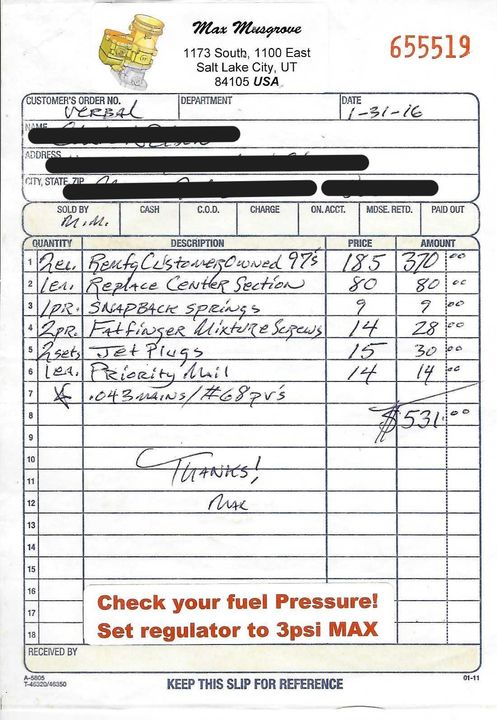 Max Musgrove
1173 South, 1100 East
Salt Lake City, UT
84105 USA
655519
CUSTOMER'S ORDER NO. DEPARTMENT DATE
VERBAL 1-31-16
NAME
ADDRESS
CITY, STATE, ZIP
SOLD BY CASH C.O.D. CHARGE ON. ACCT. MDSE. RETD. PAID OUT
M.M.
QUANTITY DESCRIPTION PRICE AMOUNT
1 2ea. Renfg Customer Owned 97's 185 370 00
2 1ea. Replace Center Section 80 80 00
3 1pr. SNAPBACK SPRINGS 9 9 00
4 2pr. Fatfinger Mixture Screws 14 28 00
5 2sets Jet Plugs 15 30 00
6 1ea. Priority Mail 14 14 00
7 .043 mains/#68 pv's
8 $531.00
9
10
11 THANKS!
12 Max
13
14
15
16
17 Check your fuel Pressure!
18 Set regulator to 3psi MAX
RECEIVED BY
A-5805
T-46320/46350
KEEP THIS SLIP FOR REFERENCE
01-11